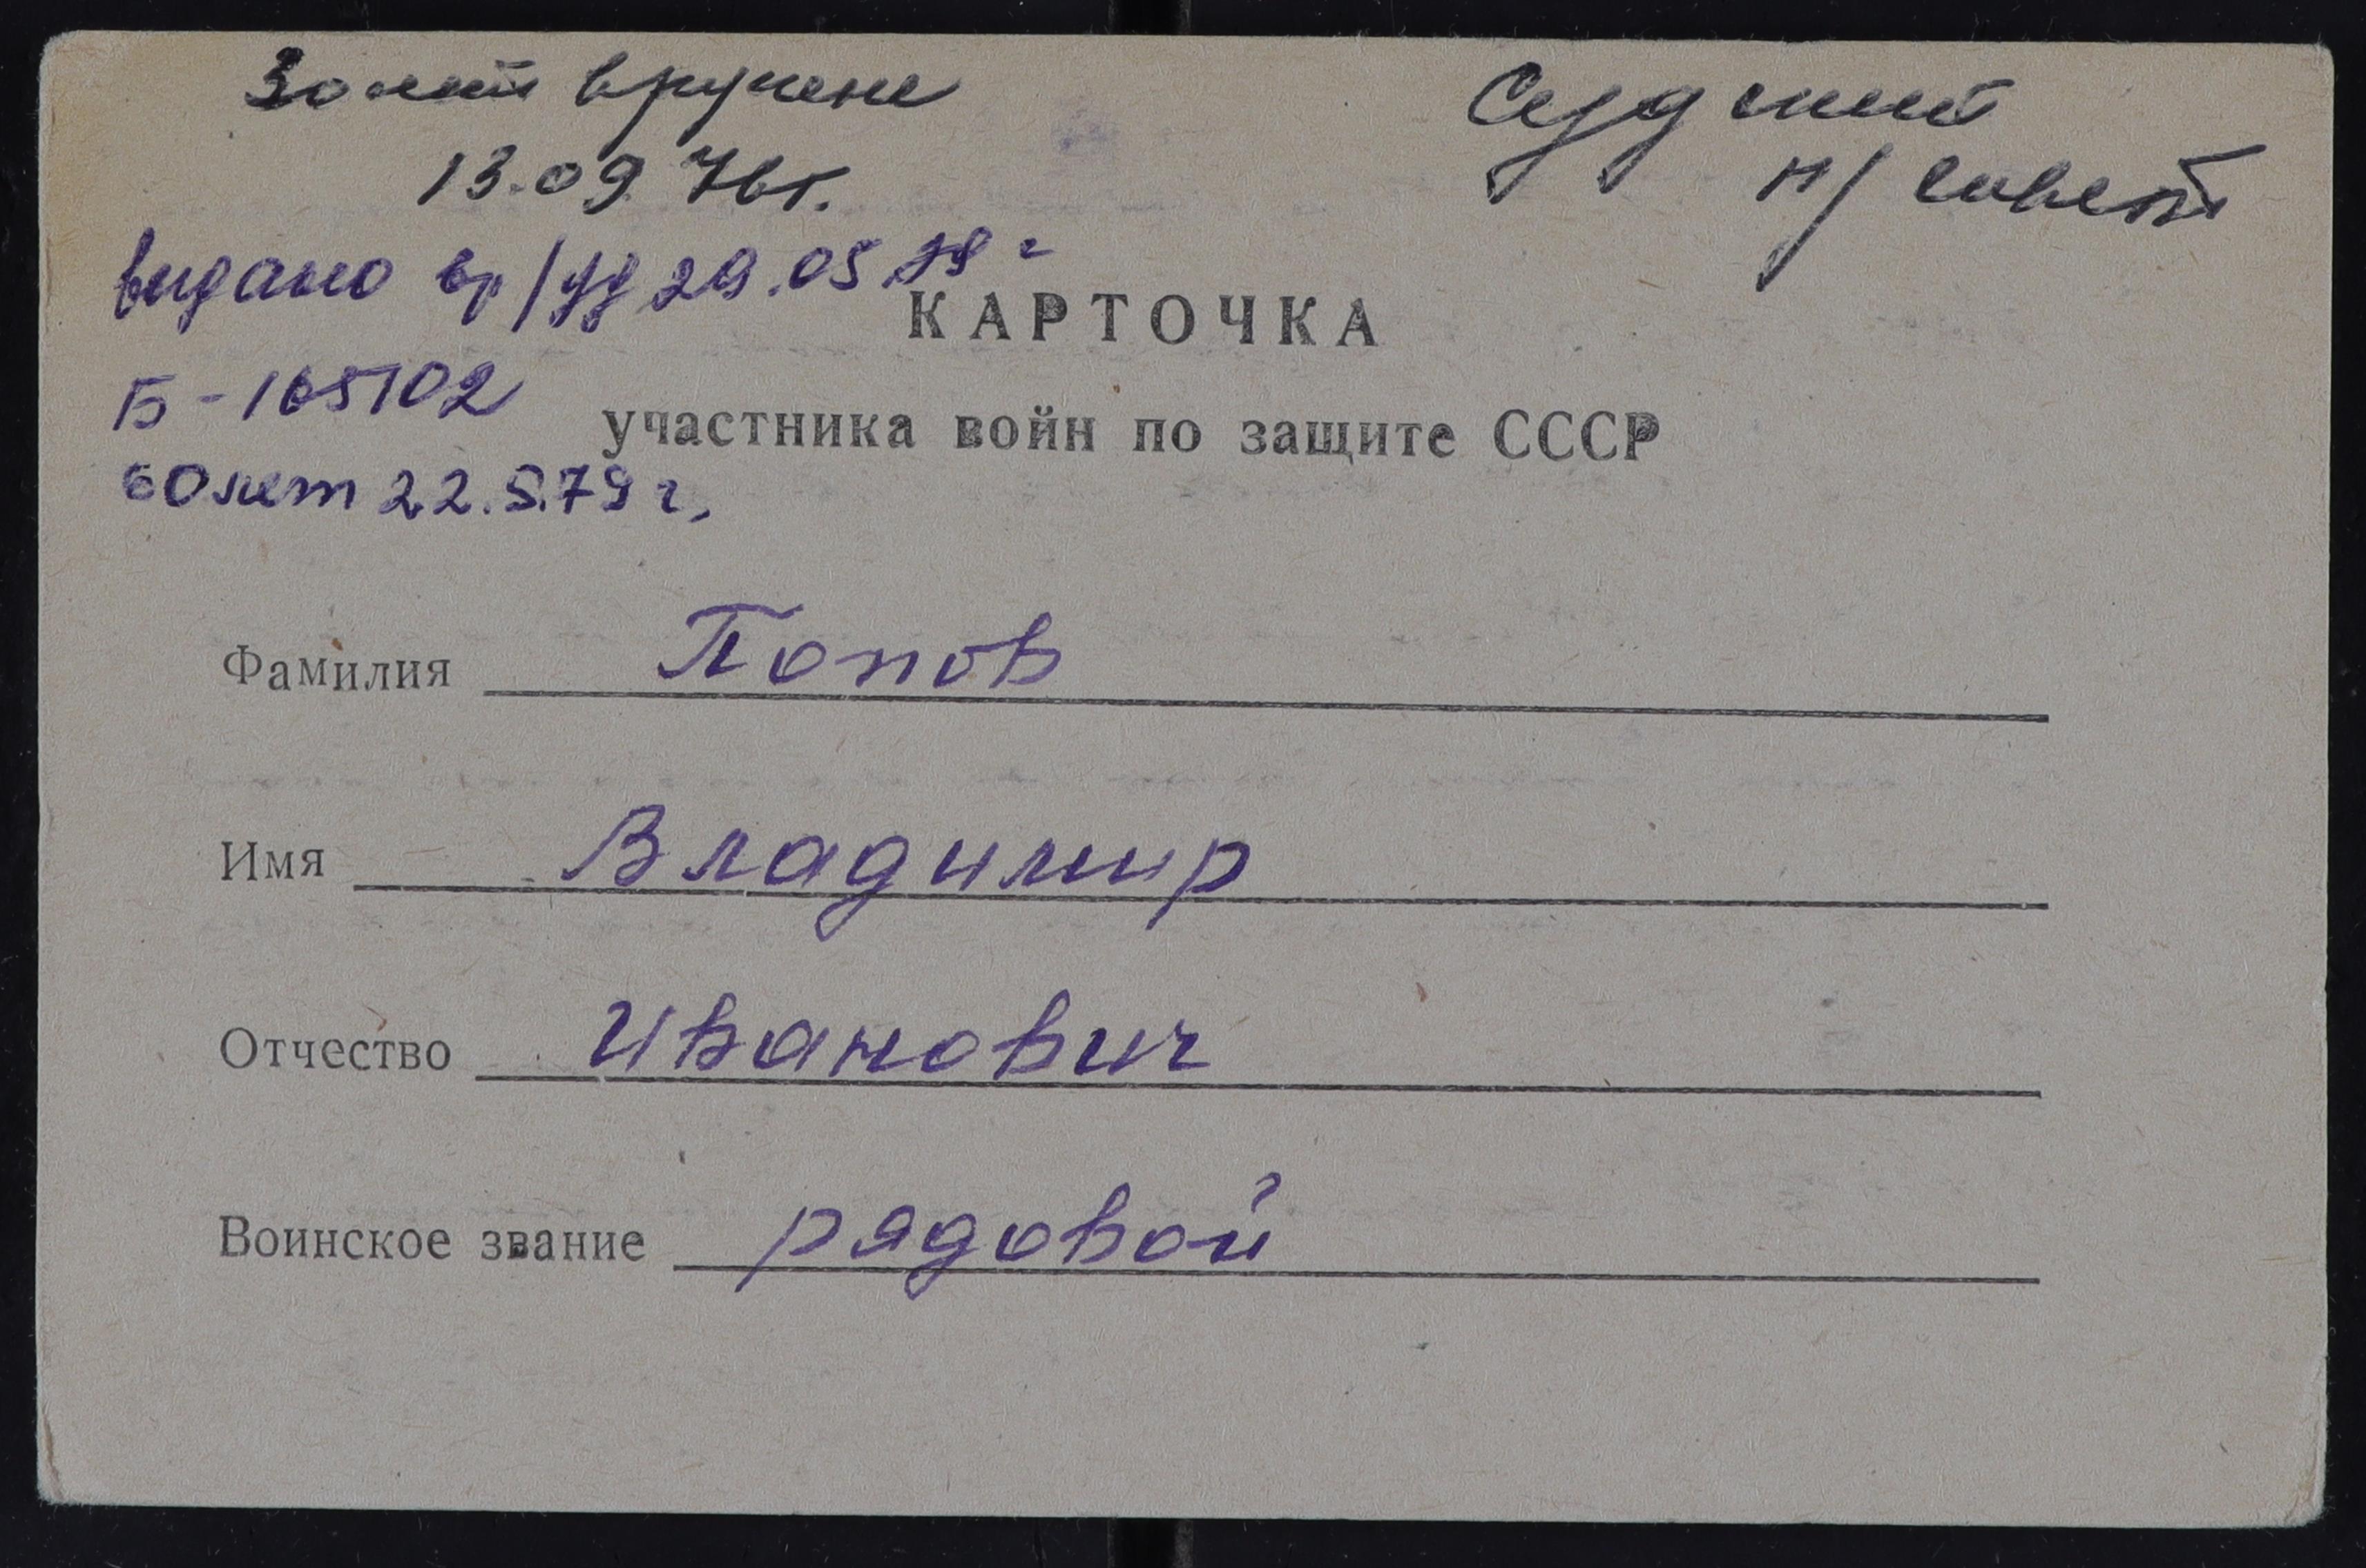 30 лет вручена
13.09 76г.
п/совет
выдано вр/уд 29.05.79 г
КАРТОЧКА
Б-165102
участника войн по защите СССР
60 лет 22.5.79 г.
Фамилия Попов
Имя Владимир
Отчество Иванович
Воинское звание рядовой